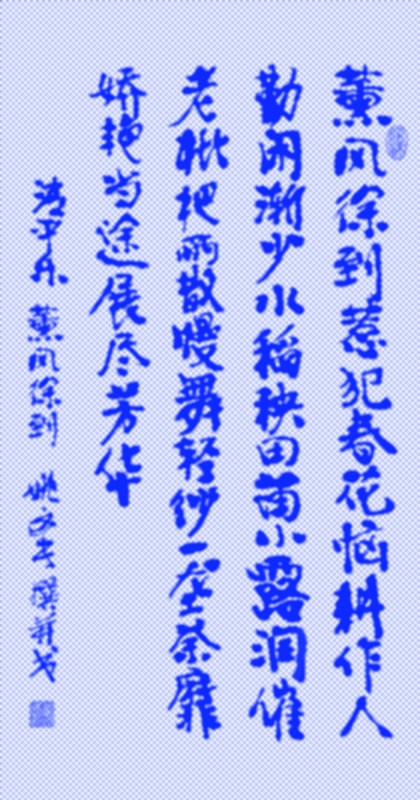 薰风徐到惹犯春花恼耕作人
勤闲渐少水稻秧田苗小露润催
老枇杷雨散幔舞轻纱一垄荼靡
娇艳当途展尽芳华
清平乐 薰风徐到 姚文 撰并书